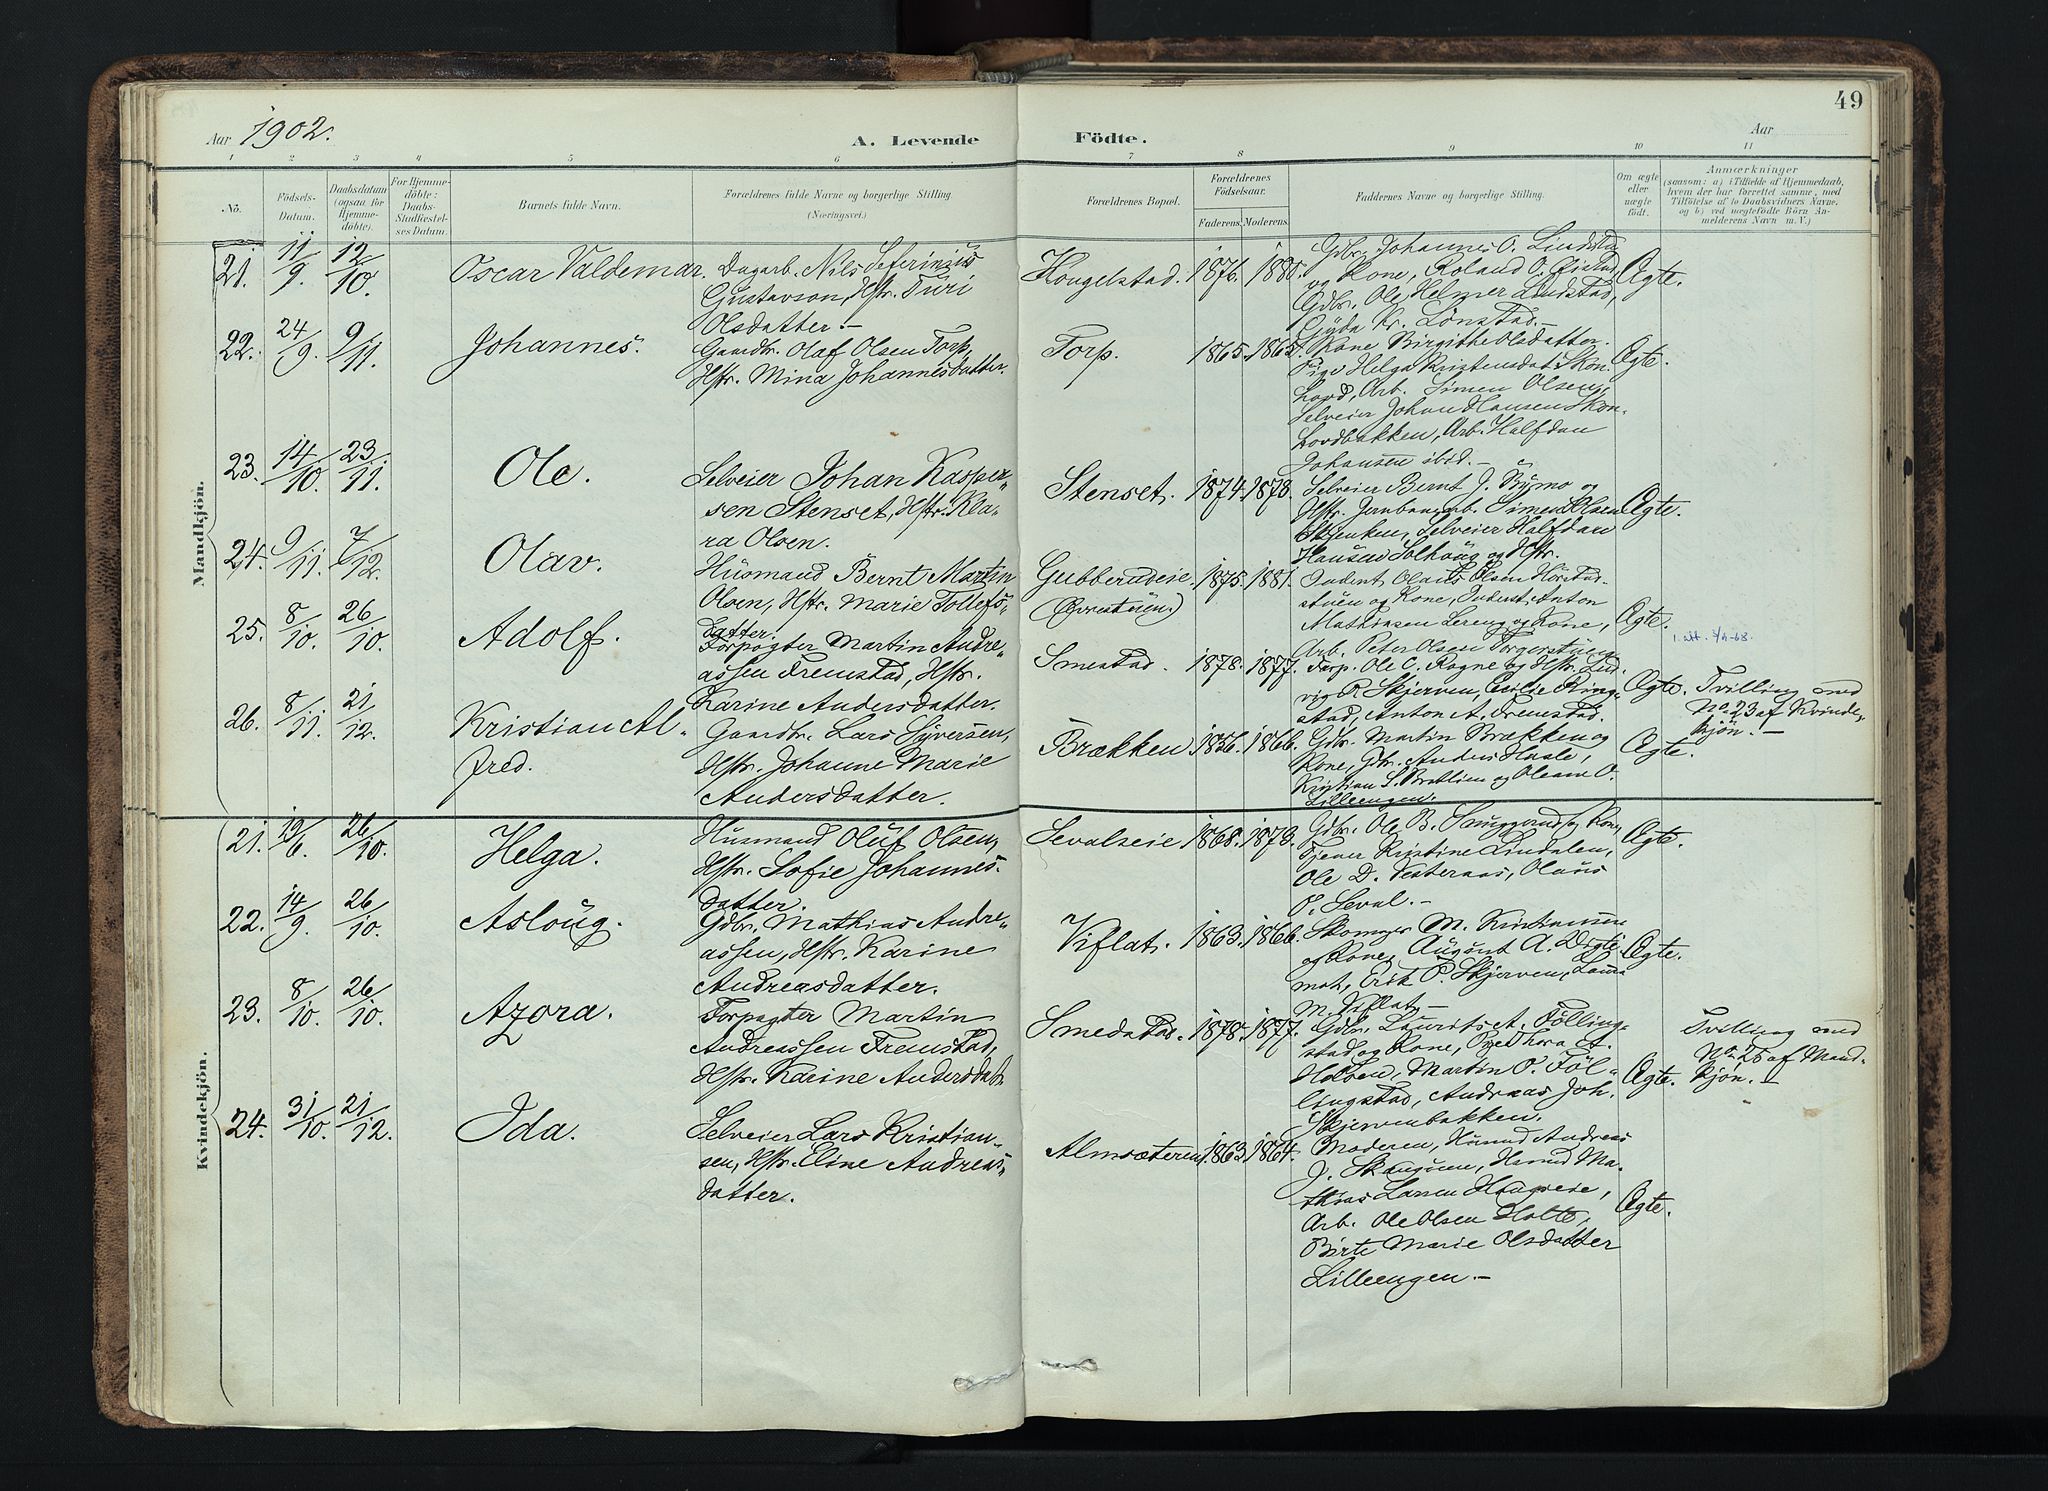 49
Aar 1902.
A. Levende Födte.
Aar
1 2 3 4 5 6 7 8 9 10 11
No.
Födsels-Datum.
Daabsdatum (ogsaa for Hjemme-döbte).
For Hjemme-döbte: Daabs-Stadfæstel-ses Datum.
Barnets fulde Navn.
Forældrenes fulde Navne og borgerlige Stilling
(Næringsvei.)
Forældrenes Bopæl.
Forældrenes Födselsaar.
Faderens. Moderens.
Faddernes Navne og borgerlige Stilling.
Om ægte eller uægte födt.
Anmærkninger
(saasom: a) i Tilfælde af Hjemmedaab, hvem der har forrettet samme, med Tilföielse af to Daabsvidners Navne, og b) ved uægtefödte Börn An-melderens Navn m. V.)
Mandkjön.
21. 11/9. 12/10. Oscar Valdemar. Dagarb. Nils Seferinius
Gustavson, Hstr. Turi
Olsdatter.-
Hougelstad. 1876. 1880. Gdbr. Johannes O. Lindstad
og Kone, Roland O.
Gdbr. Ole Helmer Lindstad,
Gyda Kr. Lönstad.-
Ægte.
22. 24/9. 9/11. Johannes. Gaardbr. Olaf Olsen Torp,
Hstr. Mina Johannesdatter.
Torp. 1865. 1865. Kone Birgithe Olsdatter.
Pige Helga Kristensdat. Skon-
hovd, Arb. Simen Olsen,
Selveier Johan Hansen Skon-
hovdbakken, Arb. Halfdan
Johansen ibid.-
Ægte.
23. 14/10. 23/11. Ole. Selveier Johan Kasper-
sen Stenset, Hstr. Kla-
ra Olsen.
Stenset. 1874. 1878. Selveier Bernt J. Bymo og
Hstr. Jernbanearb. Simen Olsen
Selveier Halfdan
Hansen Solhaug og Hstr.
Ægte.
24. 9/11. 7/12. Olav. Husmand Bernt Martin
Olsen, Hstr. Marie Tollefs-
datter.
Gubberudeie 1875. 1881.
(Øvrestuen.)
Inderst Olaus Olsen Hörstad-
stuen og Kone, Inderst Anton
Mathiasen Lereng og Kone,
Arb. Peter Olsen Torgerstuen
Ægte.
25. 8/10. 26/10. Adolf. Forpagter Martin Andre-
assen Fremstad, Hstr.
Karine Andersdatter.
Smestad. 1878. 1877. Forp. Ole C. Rogne og Hstr. Lud-
vig R. Skjerven, Cecilie Ring-
stad, Anton A. Fremstad.
Ægte. Tvilling med
No. 23 af Kvinde-
kjön.-
26. 8/11. 21/12. Kristian Al-
fred.
Gaardbr. Lars Syversen,
Hstr. Johanne Marie
Andersdatter.
Brækken 1856. 1866. Gdbr. Martin Brækken og
Kone, Gbr. Anders Haale,
Kristian S. Bratlien og Oleane O.
Lilleengen.
Ægte.
Kvindekjön.
21. 19/6. 26/10. Helga. Husmand Oluf Olsen,
Hstr. Sofie Johannes-
datter.
Sevalseie 1868. 1873. Gdbr. Ole B. Snuggerud og Kone,
Tjener Kristine Lindalen,
Ole D. Vesteraas, Olaus
P. Seval.-
Ægte.
22. 14/9. 26/10. Asloug. Gdbr. Mathias Andre-
assen, Hstr. Karine
Andreasdatter.
Viflat. 1863. 1866. Skomager M. Kristiansen
og Kone, August A. Digti-
mot, Erik P. Skjerven, Laura
M. Viflat.-
Ægte.
23. 8/10. 26/10. Azora. Forpagter Martin
Andreassen Fremstad,
Hstr. Karine Andersdat.
Smedstad. 1878. 1877. Gdbr. Laurits A. Fölling-
stad og Kone, Thora A.
Holven, Martin P. Föl-
lingstad, Andreas Joh.
Skjervenbakken.
Ægte. Tvilling med
No. 25 af Mand-
kjön.-
24. 31/10. 21/12. Ida. Selveier Lars Kristian-
sen, Hstr. Eline Andreas-
datter.
Almsæteren 1863. 1864. Moderen, Husmd Andreas
J. Skougen, Husmd Ma-
thias Larsen Haugseie,
Arb. Ole Olsen Holte,
Birte Marie Olsdatter
Lilleengen.-
Ægte.